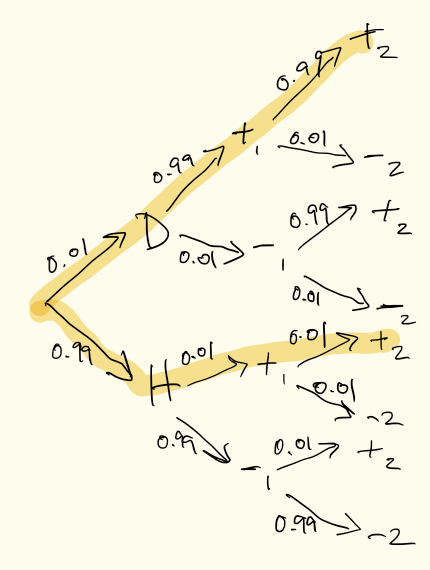 0.99 +2
0.99 +1 0.01 -2
0.01 D 0.01 -1 0.99 +2
0.01 -2
0.99 H 0.01 +1 0.01 +2
0.01 -2
0.99 -1 0.01 +2
0.99 -2